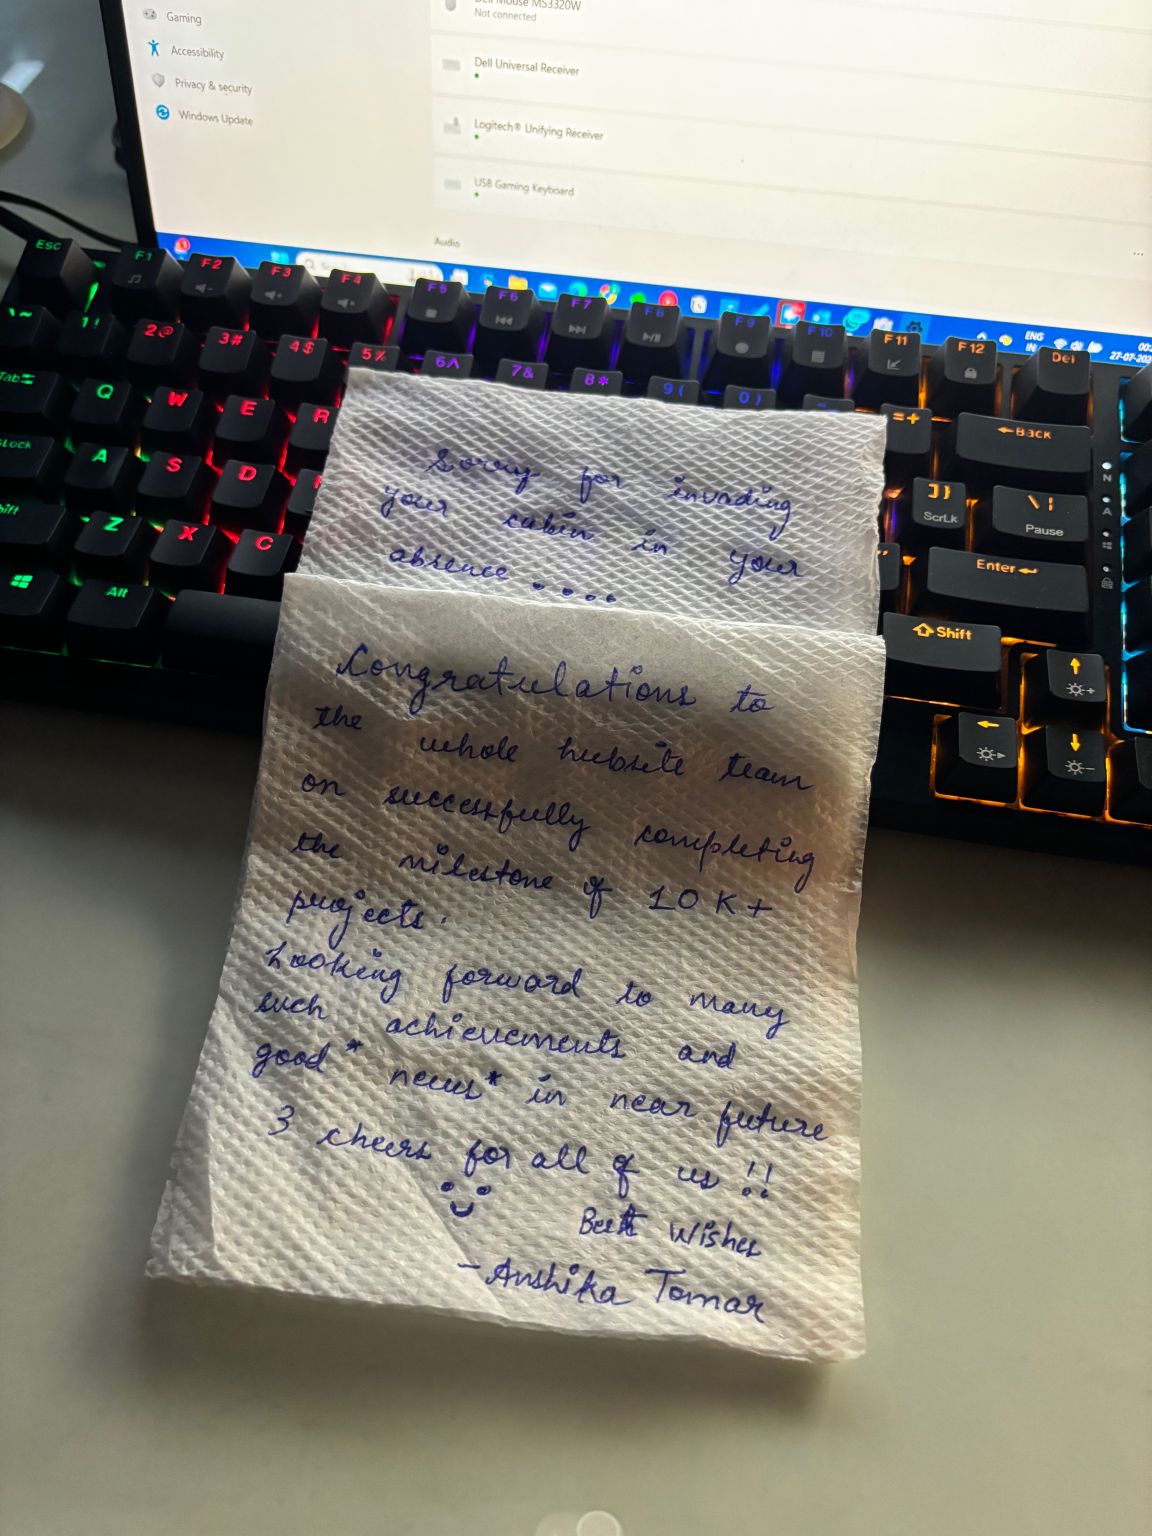 Gaming
Accessibility
Privacy & security
Windows Update
Dell Mouse MS3320W
Not connected
Dell Universal Receiver
Logitech® Unifying Receiver
USB Gaming Keyboard
Audio
ENG
IN
27-07-202
Esc F1 F2 F3 F4 F5 F6 F7 F8 F9 F10 F11 F12 Del
1! 2@ 3# 4$ 5% 6^ 7& 8* 9( 0) =+ Back
Tab Q W E R ]} ScrLk \| Pause
Lock A S D Enter
Shift Z X C Shift
Alt
N
A
Sorry for invading
your cabin in your
absence ....
Congratulations to
the whole hubsite team
on successfully completing
the milestone of 10 K+
projects.
Looking forward to many
such achievements and
good* news* in near future
3 cheers for all of us !!
Best Wishes
- Anshika Tomar